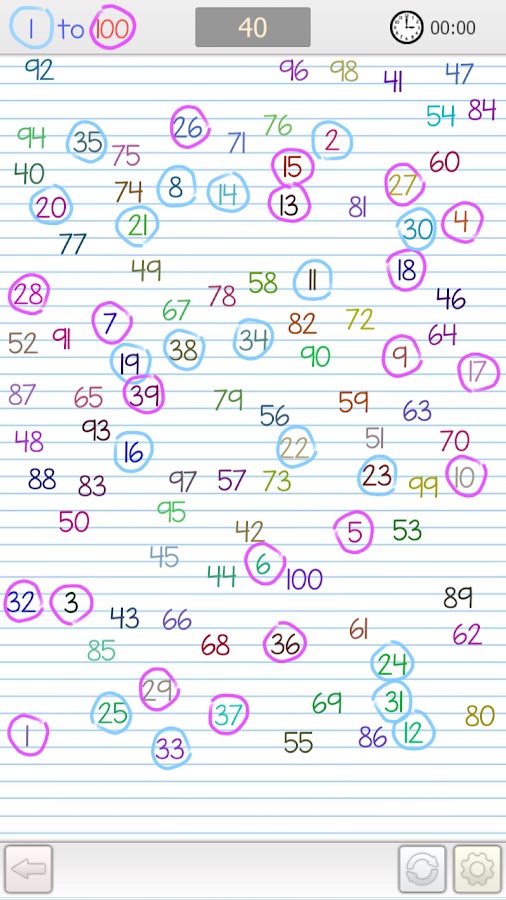 1 to 100 40 00:00
92 96 98 41 47
54 84
94 35 26 71 76 2
75 15 60
40 74 8 14 27
20 13 81
21 30 4
77
49 18
28 78 58 11 46
7 67 82 72
52 91 34 64
19 38 90 9 17
87 65 39 79 59
56 63
48 93 51 70
16 22
88 83 97 57 73 23 99 10
50 95
42 5 53
45
44 6 100
32 3 89
43 66 61 62
85 68 36
24
29
25 37 69 31 80
1 33 55 86 12